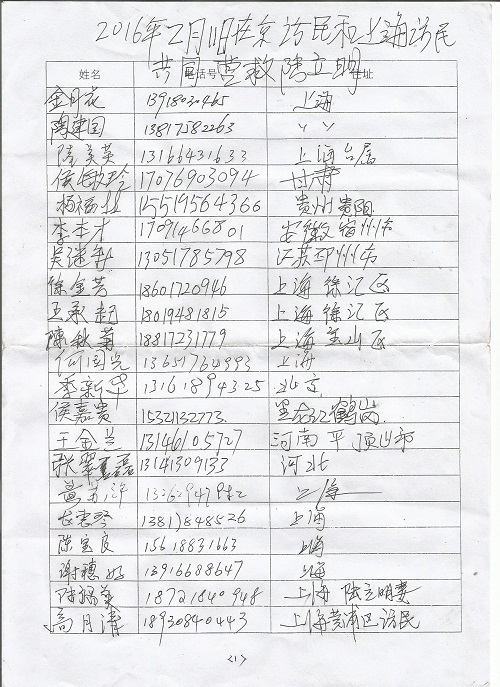 2016年2月11日在京访民和上海访民
共同营救陆立明
姓名 电话号 住址
金月花 13918030465 上海
陶建国 13817582263 〃
陆美英 13166431633 上海
侯敏玲 17076903094 甘肃
杨福林 15519564366 贵州贵阳
李本才 17091466801 安徽宿州市
吴继新 13051785798 江苏邳州市
徐金芳 18601720946 上海徐汇区
王承超 18019481815 上海徐汇区
陈秋菊 18817231779 上海金山区
何国光 13651764993 上海
季新华 13161894325 北京
侯嘉贵 15321132773 黑龙江鹤岗
于金兰 13146105727 河南平顶山市
张翠 13141309133 河北
上海
13817848526 上海
陈宝良 15618831663 上海
谢穗 13916688647 上海
18721840948 上海 陆立明妻
高月清 18930840443 上海黄浦区访民
<1>